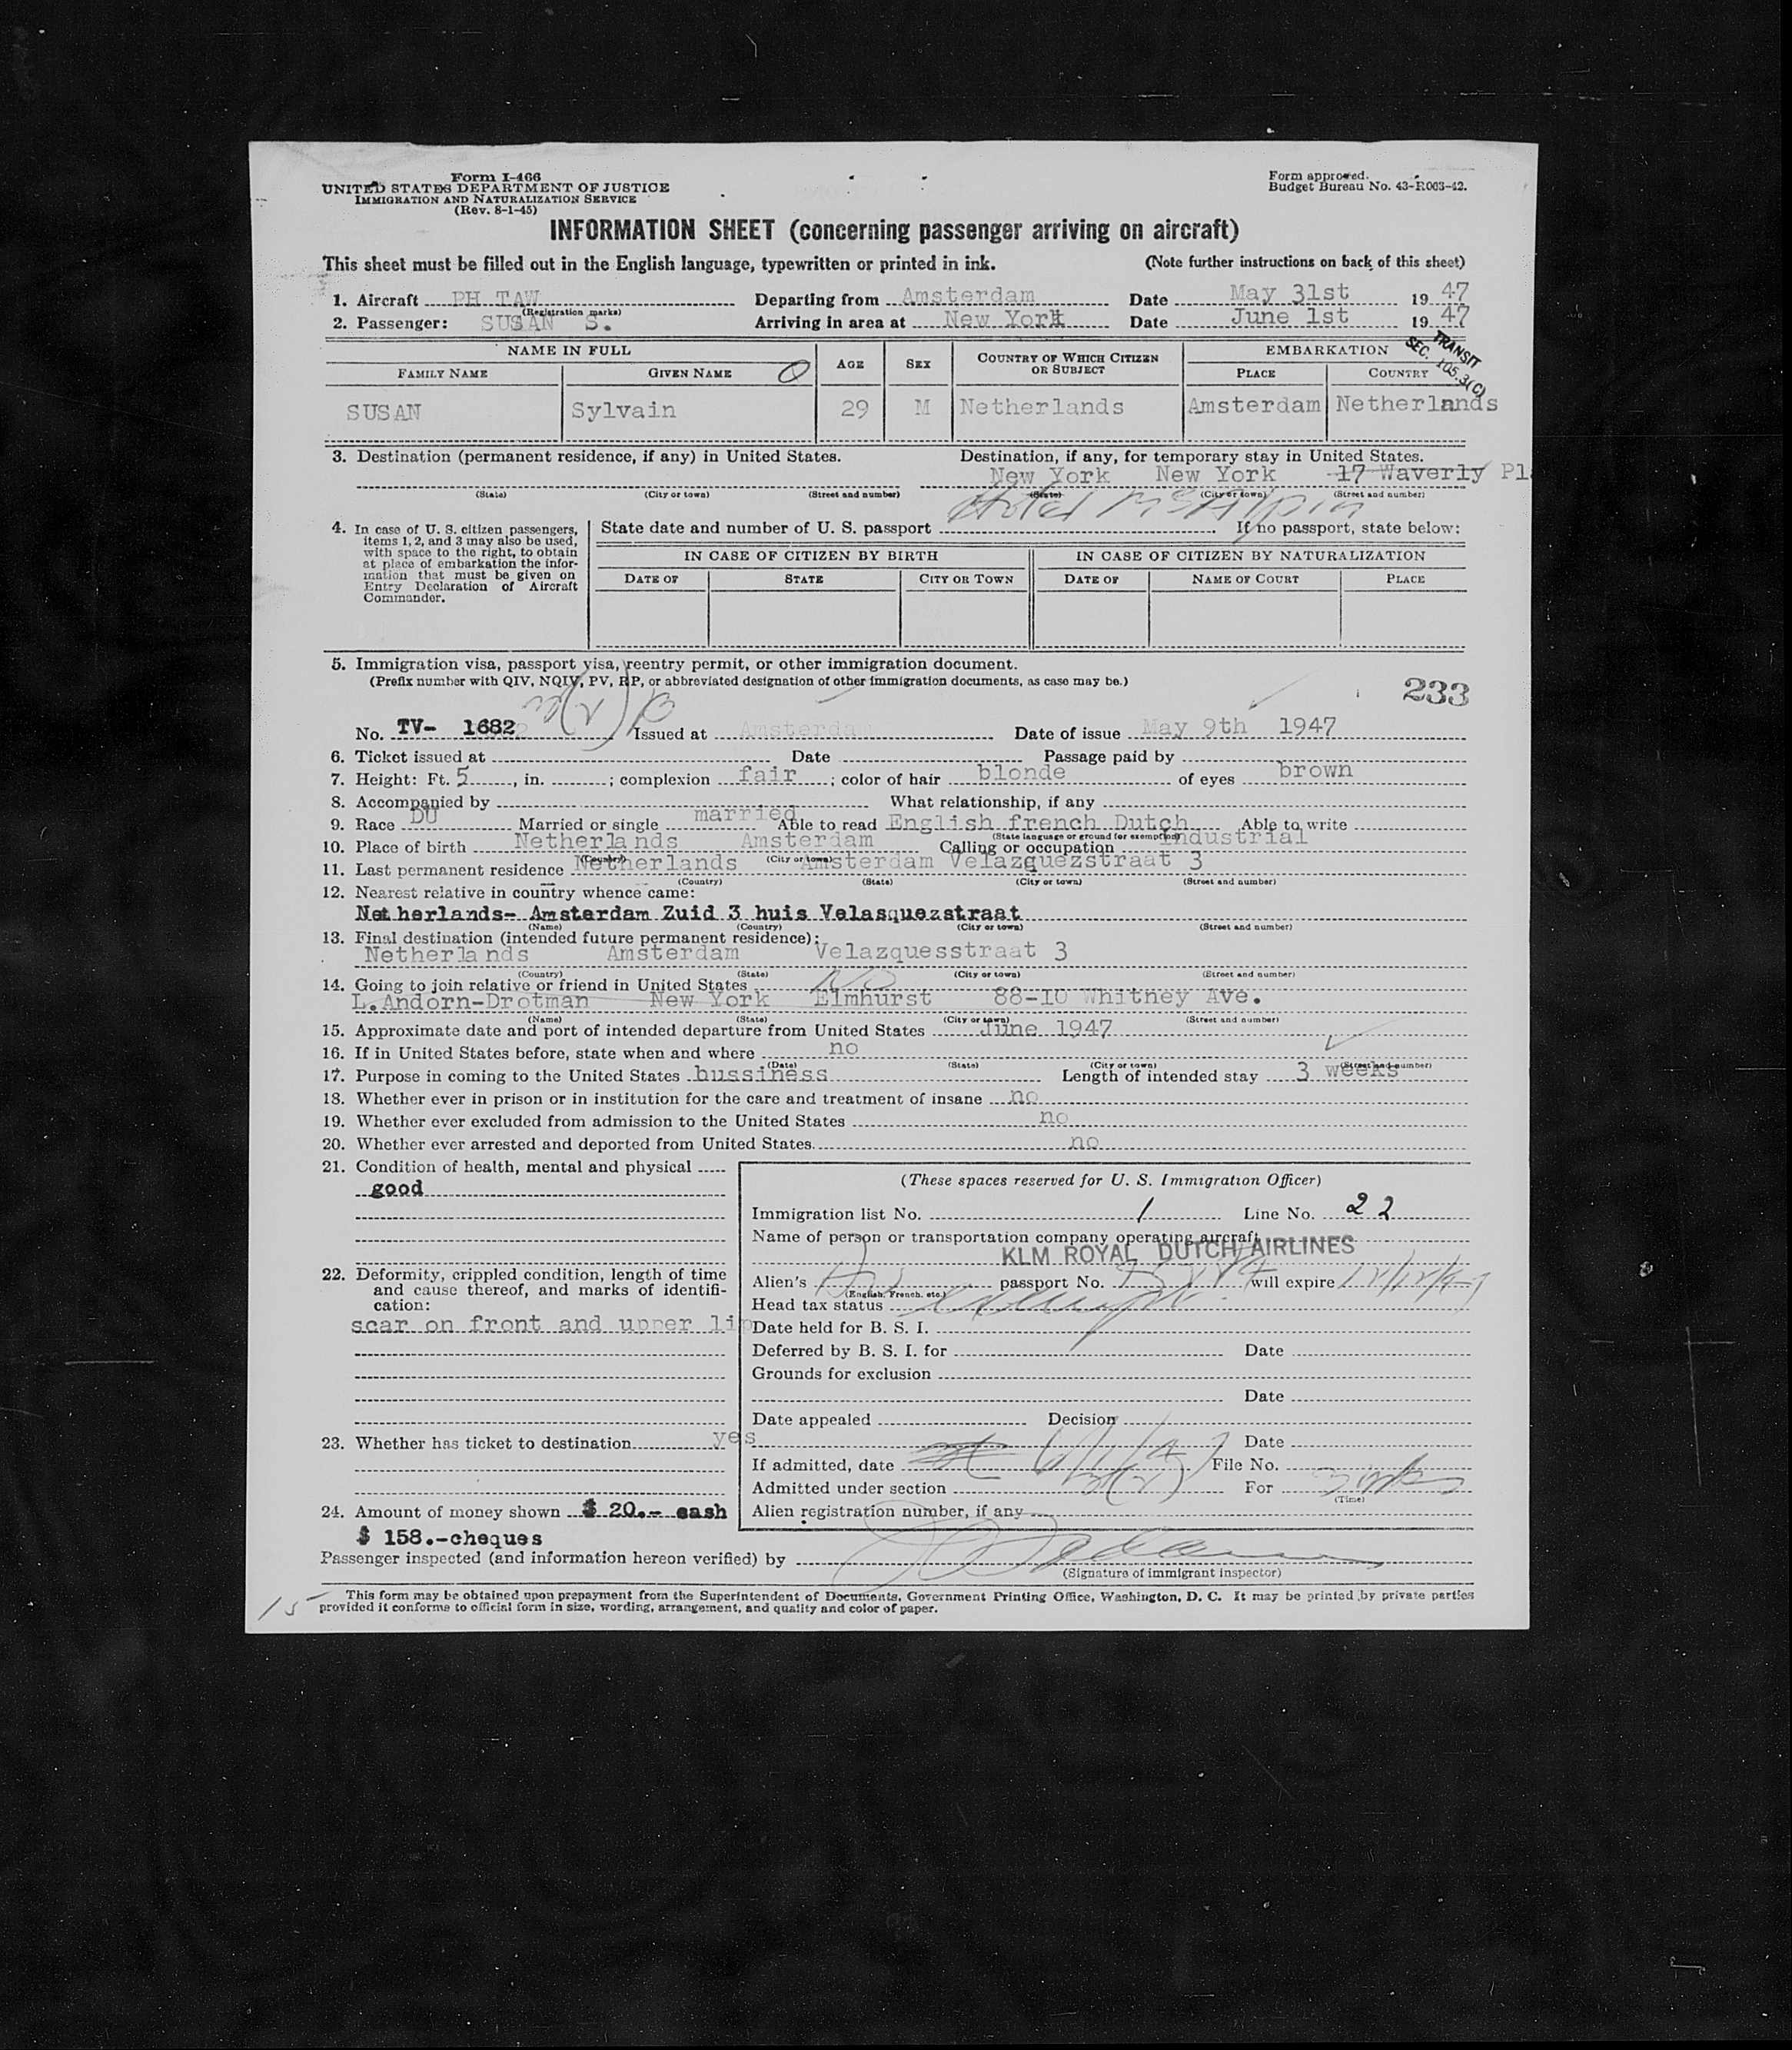 Form I-466
UNITED STATES DEPARTMENT OF JUSTICE
IMMIGRATION AND NATURALIZATION SERVICE
(Rev. 8-1-45)
Form approved.
Budget Bureau No. 43-R003-42.
INFORMATION SHEET (concerning passenger arriving on aircraft)
This sheet must be filled out in the English language, typewritten or printed in ink. (Note further instructions on back of this sheet)
1. Aircraft PH TAW Departing from Amsterdam Date May 31st 1947
(Registration marks)
2. Passenger: SUSAN S. Arriving in area at New York Date June 1st 1947
TRANSIT
SEC. 105.3(C)
NAME IN FULL AGE SEX COUNTRY OF WHICH CITIZEN OR SUBJECT EMBARKATION
FAMILY NAME GIVEN NAME PLACE COUNTRY
SUSAN Sylvain 29 M Netherlands Amsterdam Netherlands
3. Destination (permanent residence, if any) in United States. Destination, if any, for temporary stay in United States.
New York New York 17 Waverly Pl
(State) (City or town) (Street and number) (State) (City or town) (Street and number)
Hotel McAlpin
4. In case of U. S. citizen passengers, items 1, 2, and 3 may also be used, with space to the right, to obtain at place of embarkation the information that must be given on Entry Declaration of Aircraft Commander.
State date and number of U. S. passport If no passport, state below:
IN CASE OF CITIZEN BY BIRTH IN CASE OF CITIZEN BY NATURALIZATION
DATE OF STATE CITY OR TOWN DATE OF NAME OF COURT PLACE
5. Immigration visa, passport visa, reentry permit, or other immigration document.
(Prefix number with QIV, NQIV, PV, RP, or abbreviated designation of other immigration documents, as case may be.)
233
No. TV- 1682 Issued at Amsterdam Date of issue May 9th 1947
6. Ticket issued at Date Passage paid by
7. Height: Ft. 5, in. ; complexion fair ; color of hair blonde of eyes brown
8. Accompanied by What relationship, if any
9. Race DU Married or single married Able to read English french Dutch Able to write
(State language or ground for exemption)
10. Place of birth Netherlands Amsterdam Calling or occupation industrial
(Country) (City or town)
11. Last permanent residence Netherlands Amsterdam Velazquezstraat 3
(Country) (State) (City or town) (Street and number)
12. Nearest relative in country whence came:
Netherlands- Amsterdam Zuid 3 huis Velasquezstraat
(Name) (Country) (City or town) (Street and number)
13. Final destination (intended future permanent residence):
Netherlands Amsterdam Velazquesstraat 3
(Country) (State) (City or town) (Street and number)
14. Going to join relative or friend in United States No
L.Andorn-Drotman New York Elmhurst 88-10 Whitney Ave.
(Name) (State) (City or town) (Street and number)
15. Approximate date and port of intended departure from United States June 1947
16. If in United States before, state when and where no
(Date) (State) (City or town) (Street and number)
17. Purpose in coming to the United States bussiness Length of intended stay 3 weeks
18. Whether ever in prison or in institution for the care and treatment of insane no
19. Whether ever excluded from admission to the United States no
20. Whether ever arrested and deported from United States. no
21. Condition of health, mental and physical
good
22. Deformity, crippled condition, length of time and cause thereof, and marks of identification:
scar on front and upper lip
23. Whether has ticket to destination yes
24. Amount of money shown $ 20.- cash
$ 158.-cheques
(These spaces reserved for U. S. Immigration Officer)
Immigration list No. 1 Line No. 22
Name of person or transportation company operating aircraft
KLM ROYAL DUTCH AIRLINES
Alien's passport No. will expire
(English, French, etc.)
Head tax status
Date held for B. S. I.
Deferred by B. S. I. for Date
Grounds for exclusion
Date
Date appealed Decision
Date
If admitted, date 6/1/47 File No.
Admitted under section 3(2) For 3 wks
(Time)
Alien registration number, if any
Passenger inspected (and information hereon verified) by
(Signature of immigrant inspector)
15
This form may be obtained upon prepayment from the Superintendent of Documents, Government Printing Office, Washington, D. C. It may be printed by private parties
provided it conforms to official form in size, wording, arrangement, and quality and color of paper.